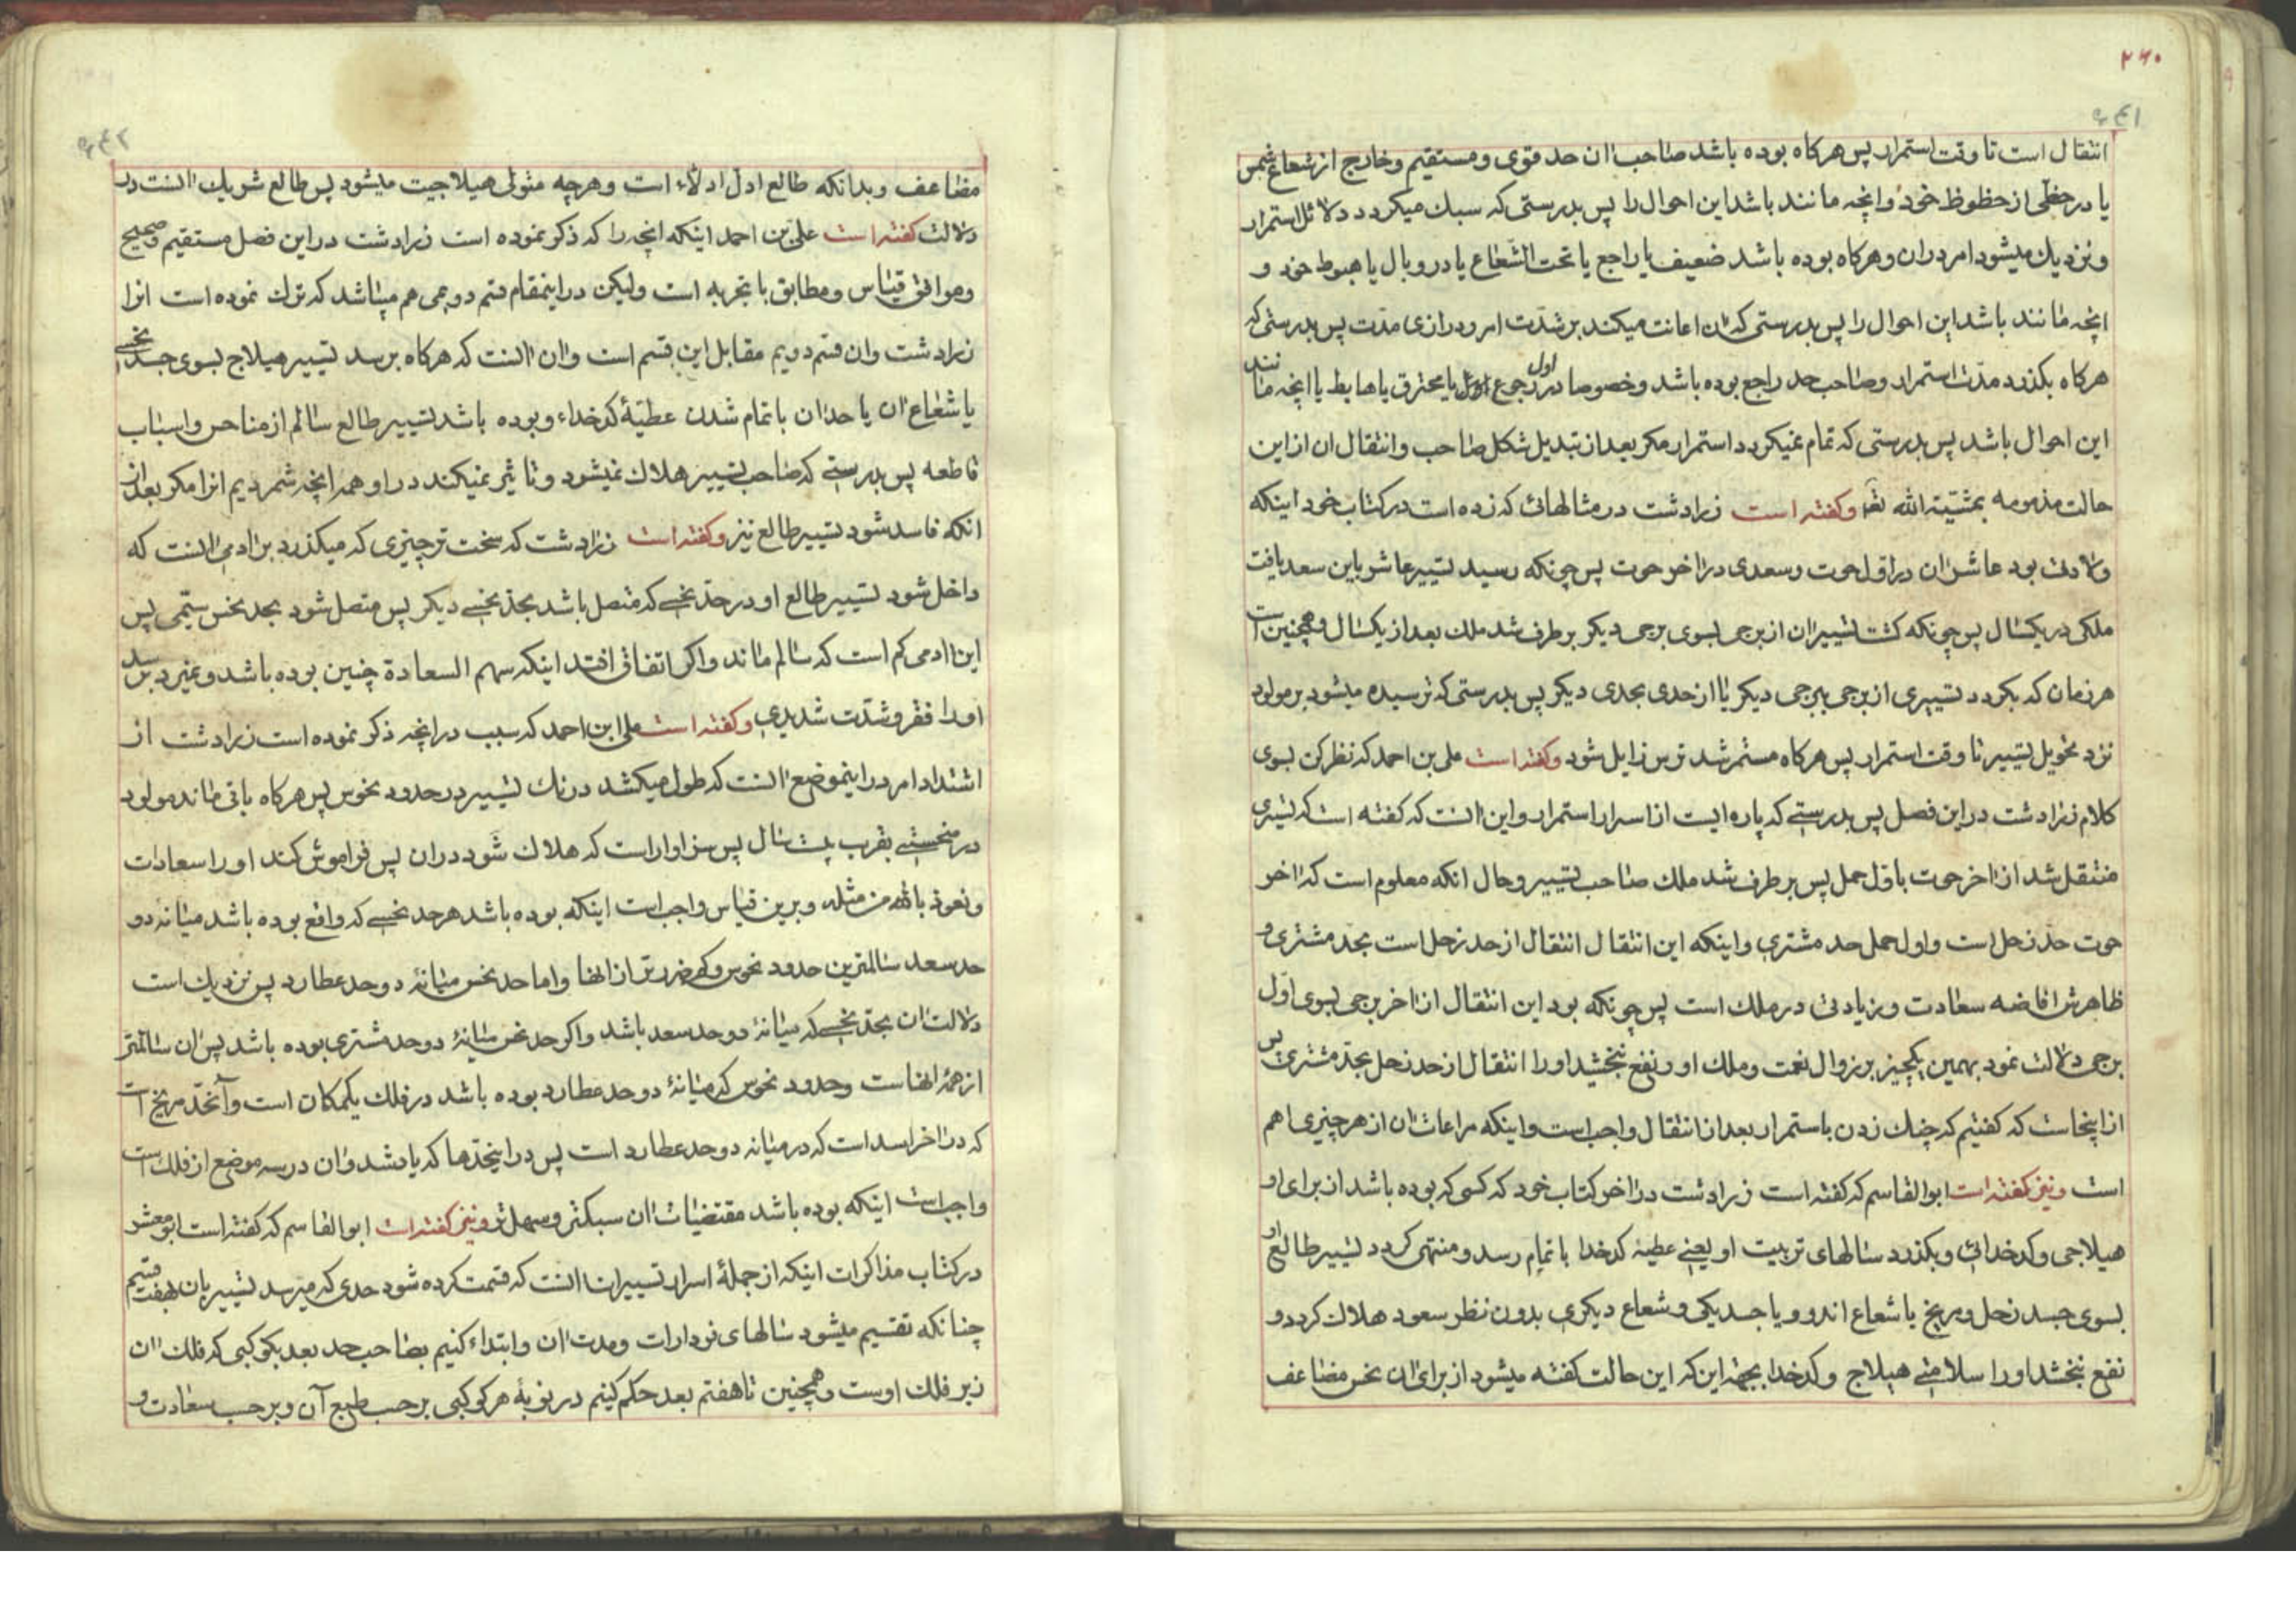 ۲۶۰
۹۴۱
انتقال است تا وقت استمرار پس هرکاه بوده باشد صاحب ان حد قوی و مستقیم و خارج از شعاع شمس
یا در حظی از حظوظ خود و انچه مانند باشد این احوال را پس بدرستی که سبک میکردد دلائل استمرار
و نزدیک میشود امر دران و هرکاه بوده باشد ضعیف یا راجع یا تحت الشعاع یا در وبال یا هبوط خود و
انچه مانند باشد این احوال را پس بدرستی که ان اعانت میکند بر شدت امر و درازی مدت پس بدرستی که
هرکاه بکذرد مدت استمرار و صاحب حد راجع بوده باشد و خصوصا در رجوع اول یا محترق یا هابط یا انچه مانند
این احوال باشد پس بدرستی که تمام نمیکردد استمرار مکر بعد از تبدیل شکل صاحب و انتقال ان از این
حالت مذمومه بمشیته الله تعا وکفته است زرادشت در مثالهائی که زده است در کتاب خود اینکه
ولادتی بود عاشر ان در اول حوت و سعدی در اخر حوت پس چونکه رسید تسییر عاشر باین سعد یافت
ملکی در یکسال پس چونکه کشت تسییر ان از برجی بسوی برجی دیکر بر طرف شد ملک بعد از یکسال و همچنین است
هر زمان که بکردد تسییری از برجی ببرجی دیکر یا از حدی بحدی دیکر پس بدرستی که ترسیده میشود بر مولود
نزد تحویل تسییر تا وقت استمرار پس هرکاه مستمر شد ترس زایل شود وکفته است علی بن احمد که نظر کن بسوی
کلام زرادشت در این فصل پس بدرستی که پاره ایست از اسرار استمرار و این انست که کفته است که تسییری
منتقل شد از اخر حوت باول حمل پس بر طرف شد ملک صاحب تسییر و حال انکه معلوم است که اخر
حوت حد زحل است و اول حمل حد مشتری و اینکه این انتقال انتقال از حد زحل است بحد مشتری و
ظاهرش افاضه سعادت و زیادتی در ملک است پس چونکه بود این انتقال از اخر برجی بسوی اول
برجی دلالت نمود بهمین یکچیز بر زوال نعمت و ملک او و نفع نبخشید او را انتقال از حد زحل بحد مشتری پس
از اینجاست که کفتیم که چنک زدن باستمرار بعد از انتقال واجب است و اینکه مراعات ان از هر چیزی اهم
است ونیز کفته است ابوالقاسم که کفته است زرادشت در اخر کتاب خود که کسی که بوده باشد از برای او
هیلاجی و کدخدائی و بکذرد سالهای تربیت او یعنی عطیه کدخدا باتمام رسد و منتهی کردد تسییر طالع او
بسوی جسد زحل و مریخ یا شعاع اندو و یا جسد یکی و شعاع دیکری بدون نظر سعود هلاک کردد و
نفع نبخشد او را سلامتی هیلاج و کدخدا بجهة این که این حالت کفته میشود از برای ان نحس مضاعف
۹۴۲
مضاعف و بدانکه طالع ادل ادلاء است و هرچه متولی هیلاجیت میشود پس طالع شریک انست در
دلالت کفته است علی بن احمد اینکه انچه را که ذکر نموده است زرادشت در این فصل مستقیم و صحیح
و موافق قیاس و مطابق با تجربه است ولیکن در اینمقام قسم دویمی هم میباشد که ترک نموده است انرا
زرادشت و ان قسم دویم مقابل این قسم است و ان انست که هرکاه برسد تسییر هیلاج بسوی جسد نحسی
یا شعاع ان یا حد ان باتمام شدن عطیهٔ کدخداء و بوده باشد تسییر طالع سالم از مناحس و اسباب
قاطعه پس بدرستی که صاحب تسییر هلاک نمیشود و تاثیر نمیکند در او همه انچه شمردیم انرا مکر بعد از
انکه فاسد شود تسییر طالع نیز وکفته است زرادشت که سخت تر چیزی که میکذرد بر ادمی انست که
داخل شود تسییر طالع او در حد نحسی که متصل باشد بحد نحسی دیکر پس متصل شود بحد نحس سیمی پس
این ادمی کم است که سالم ماند و اکر اتفاق افتد اینکه سهم السعادة چنین بوده باشد و نمیرد برسد
اورا فقر و شدت شدیدی وکفته است علی ابن احمد که سبب در انچه ذکر نموده است زرادشت از
اشتداد امر در اینموضع انست که طول میکشد درنک تسییر در حدود نحوس پس هرکاه باقی ماند مولود
در منحستی بقرب بیست سال پس سزاوار است که هلاک شود دران پس فراموش کند او را سعادات
و نعوذ بالله من مثله و برین قیاس واجب است اینکه بوده باشد هر حد نحسی که واقع بوده باشد میانه دو
حد سعد سالمترین حدود نحوس و کم ضررتر از انها و اما حد نحس میانهٔ دو حد عطارد پس نزدیک است
دلالت ان بحد نحسی که میانهٔ دو حد سعد باشد و اکر حد نحس میانهٔ دو حد مشتری بوده باشد پس ان سالمتر
از همهٔ انهاست و حدود نحوس که میانهٔ دو حد عطارد بوده باشد در فلک یکمکان است و آنحد مریخ است
که در اخر اسد است که در میانه دو حد عطارد است پس در اینحدها که یاد شد و ان در سه موضع از فلک است
واجب است اینکه بوده باشد مقتضیات ان سبکتر و سهل تر ونیز کفته است ابوالقاسم که کفته است ابو معشر
در کتاب مذاکرات اینکه از جملهٔ اسرار تسییرات انست که قسمت کرده شود حدی که میرسد تسییر بان بهفت قسم
چنانکه تقسیم میشود سالهای فردارات و مدت ان و ابتداء کنیم بصاحب حد بعد بکوکبی که فلک ان
زیر فلک اوست و همچنین تا هفتم بعد حکم کنیم در نوبهٔ هر کوکبی بر حسب طبع آن و بر حسب سعادت و